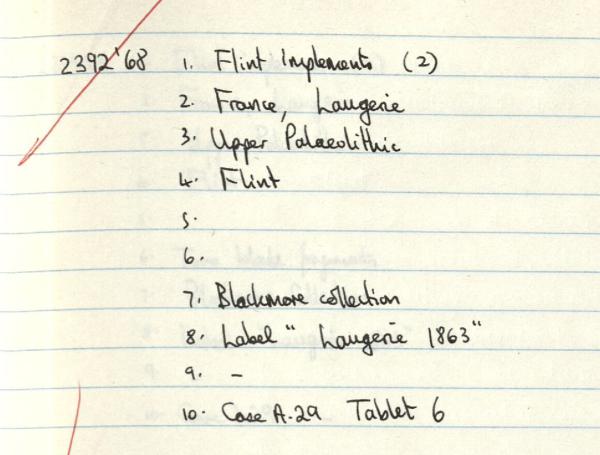 2392'68 1. Flint Implements (2)
2. France, Laugerie
3. Upper Palaeolithic
4. Flint
5.
6.
7. Blackmore collection
8. Label "Laugerie 1863"
9. -
10. Case A.29 Tablet 6